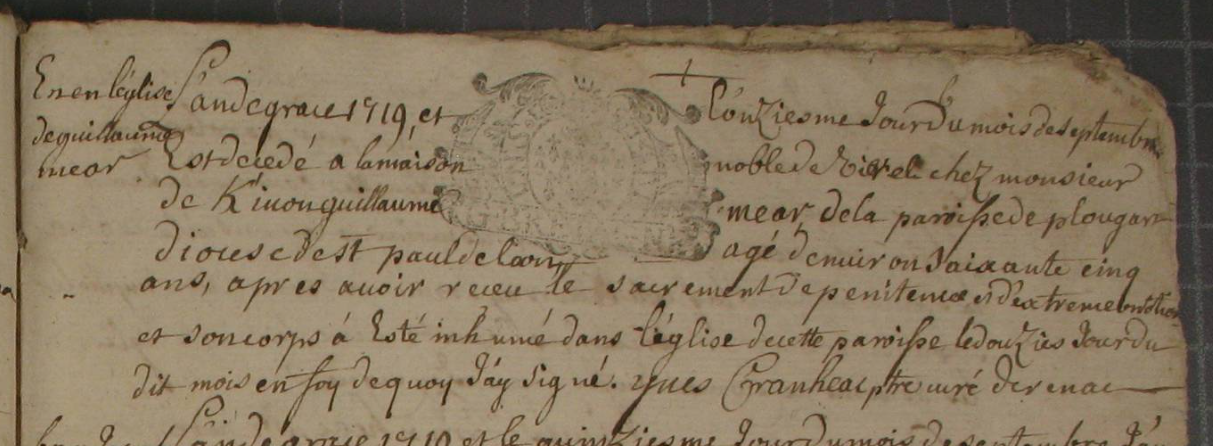 En en l'église
de guillaume
mear
L'an de grace 1719, et l'onziesme Jour Du mois de septembre
Est decedé a la maison noble de chez monsieur
de K'iuon guillaume mear de la paroisse de plougar
diouse de st paul de leon, agé d'enuiron Saixante cinq
ans, apres auoir receu le sacrement de penitence et d'extreme onction
et son corps á Esté inhumé dans l'église de cette paroisse le douzies Jour du
dit mois en foy de quoy J'ay signé. yues Cranheac ptre curé de
L'an de grace 1719 et le quinziesme Jour du mois de septembre